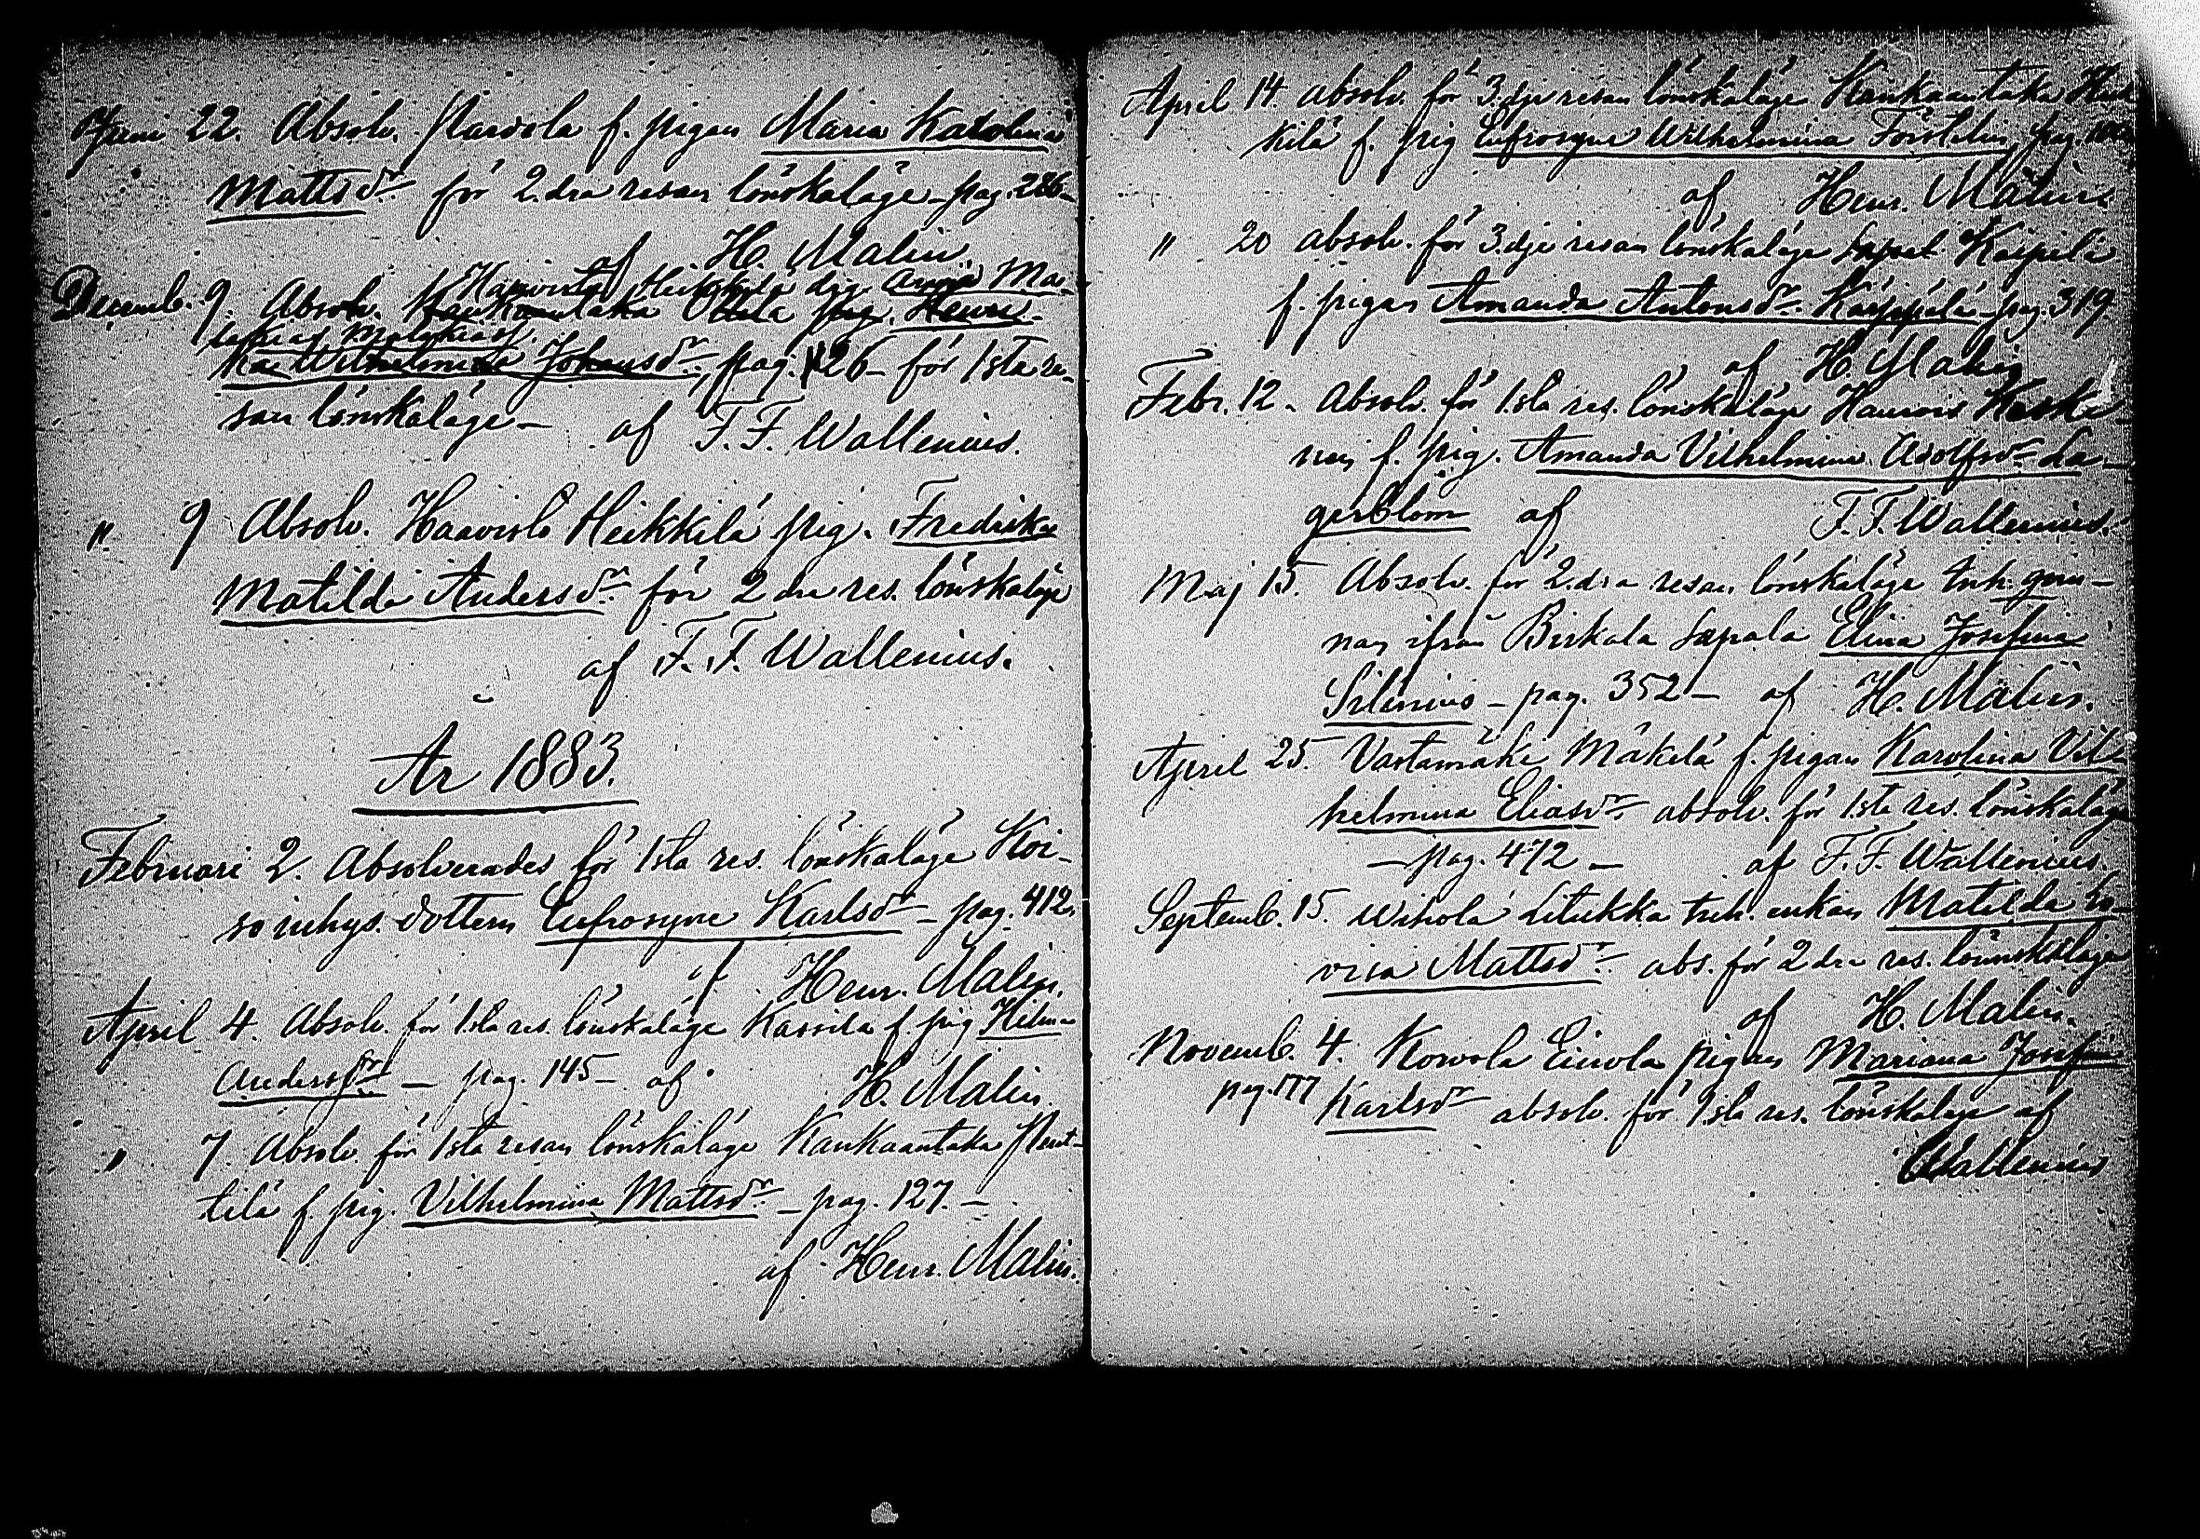 Juni 22. Absolv. Narvola f. pigan Maria Karolina
Mattsdr för 2.dra resan lönskaläge - pag. 286 -
af H. Malin.
Haavisto Heikkilä Anna Ma-
Decemb. 9. Absolv. Kaukaantaka Ollila pig. Henri-
ka Wilhelmina Johansdr, pag. 126 - för 1sta re-
san lönskaläge - af F. F. Wallenius.
" 9 Absolv. Haavisto Heikkilä pig. Fredrika
Matilda Andersdr för 2dra res. lönskaläge
af F. F. Wallenius.
År 1883.
Februari 2. Absolverades för 1sta res. lönskaläge Koi-
so inhys. dottern Eufrosyne Karlsdr - pag. 412.
af Henr. Malin.
April 4. Absolv. för 1sta res. lönskaläge Kassila f. pig Hilma
Andersdr - pag. 145 - af H. Malin.
" 7. Absolv. för 1sta resan lönskaläge Kaukaantaka Pent-
tilä f. pig. Vilhelmina Mattsdr - pag. 127. -
af Henr. Malin.
April 14. absolv. för 3.dje resan lönskaläge Kaukaantaka
kilä f. pig Eufrosyne Wilhelmina Forstelin pag.
af Henr. Malin
" 20 absolv. för 3.dje resan lönskaläge Kaipila
f. pigan Amanda Antonsdr Karppila - pag. 319
af H. Malin
Febr. 12. Absolv. för 1.sta res. lönskaläge Hannois Koski-
nen f. pig. Amanda Vilhelmina Adolfsdr La-
gerblom af F. F. Wallenius.
Maj 15. Absolv. för 2.dra resan lönskaläge inh. qvin-
nan ifrån Birkala Sepälä Elina Josefina
Silenius - pag. 352 - af H. Malin.
April 25. Vastamäki Mäkelä f. pigan Karolina Vil-
helmina Eliasdr absolv. för 1.sta res. lönskaläge
- pag. 472 - af F. F. Wallenius.
Septemb. 15. Wihola Litukka inh. enkan Matilda Lo-
visa Mattsdr abs. för 2dra res. lönnskaläge
af H. Malin.
Novemb. 4. Kowola Einola pigan Mariana Josef-
pag. 177 Karlsdr absolv. för 1.sta res. lönskaläge af
Wallenius